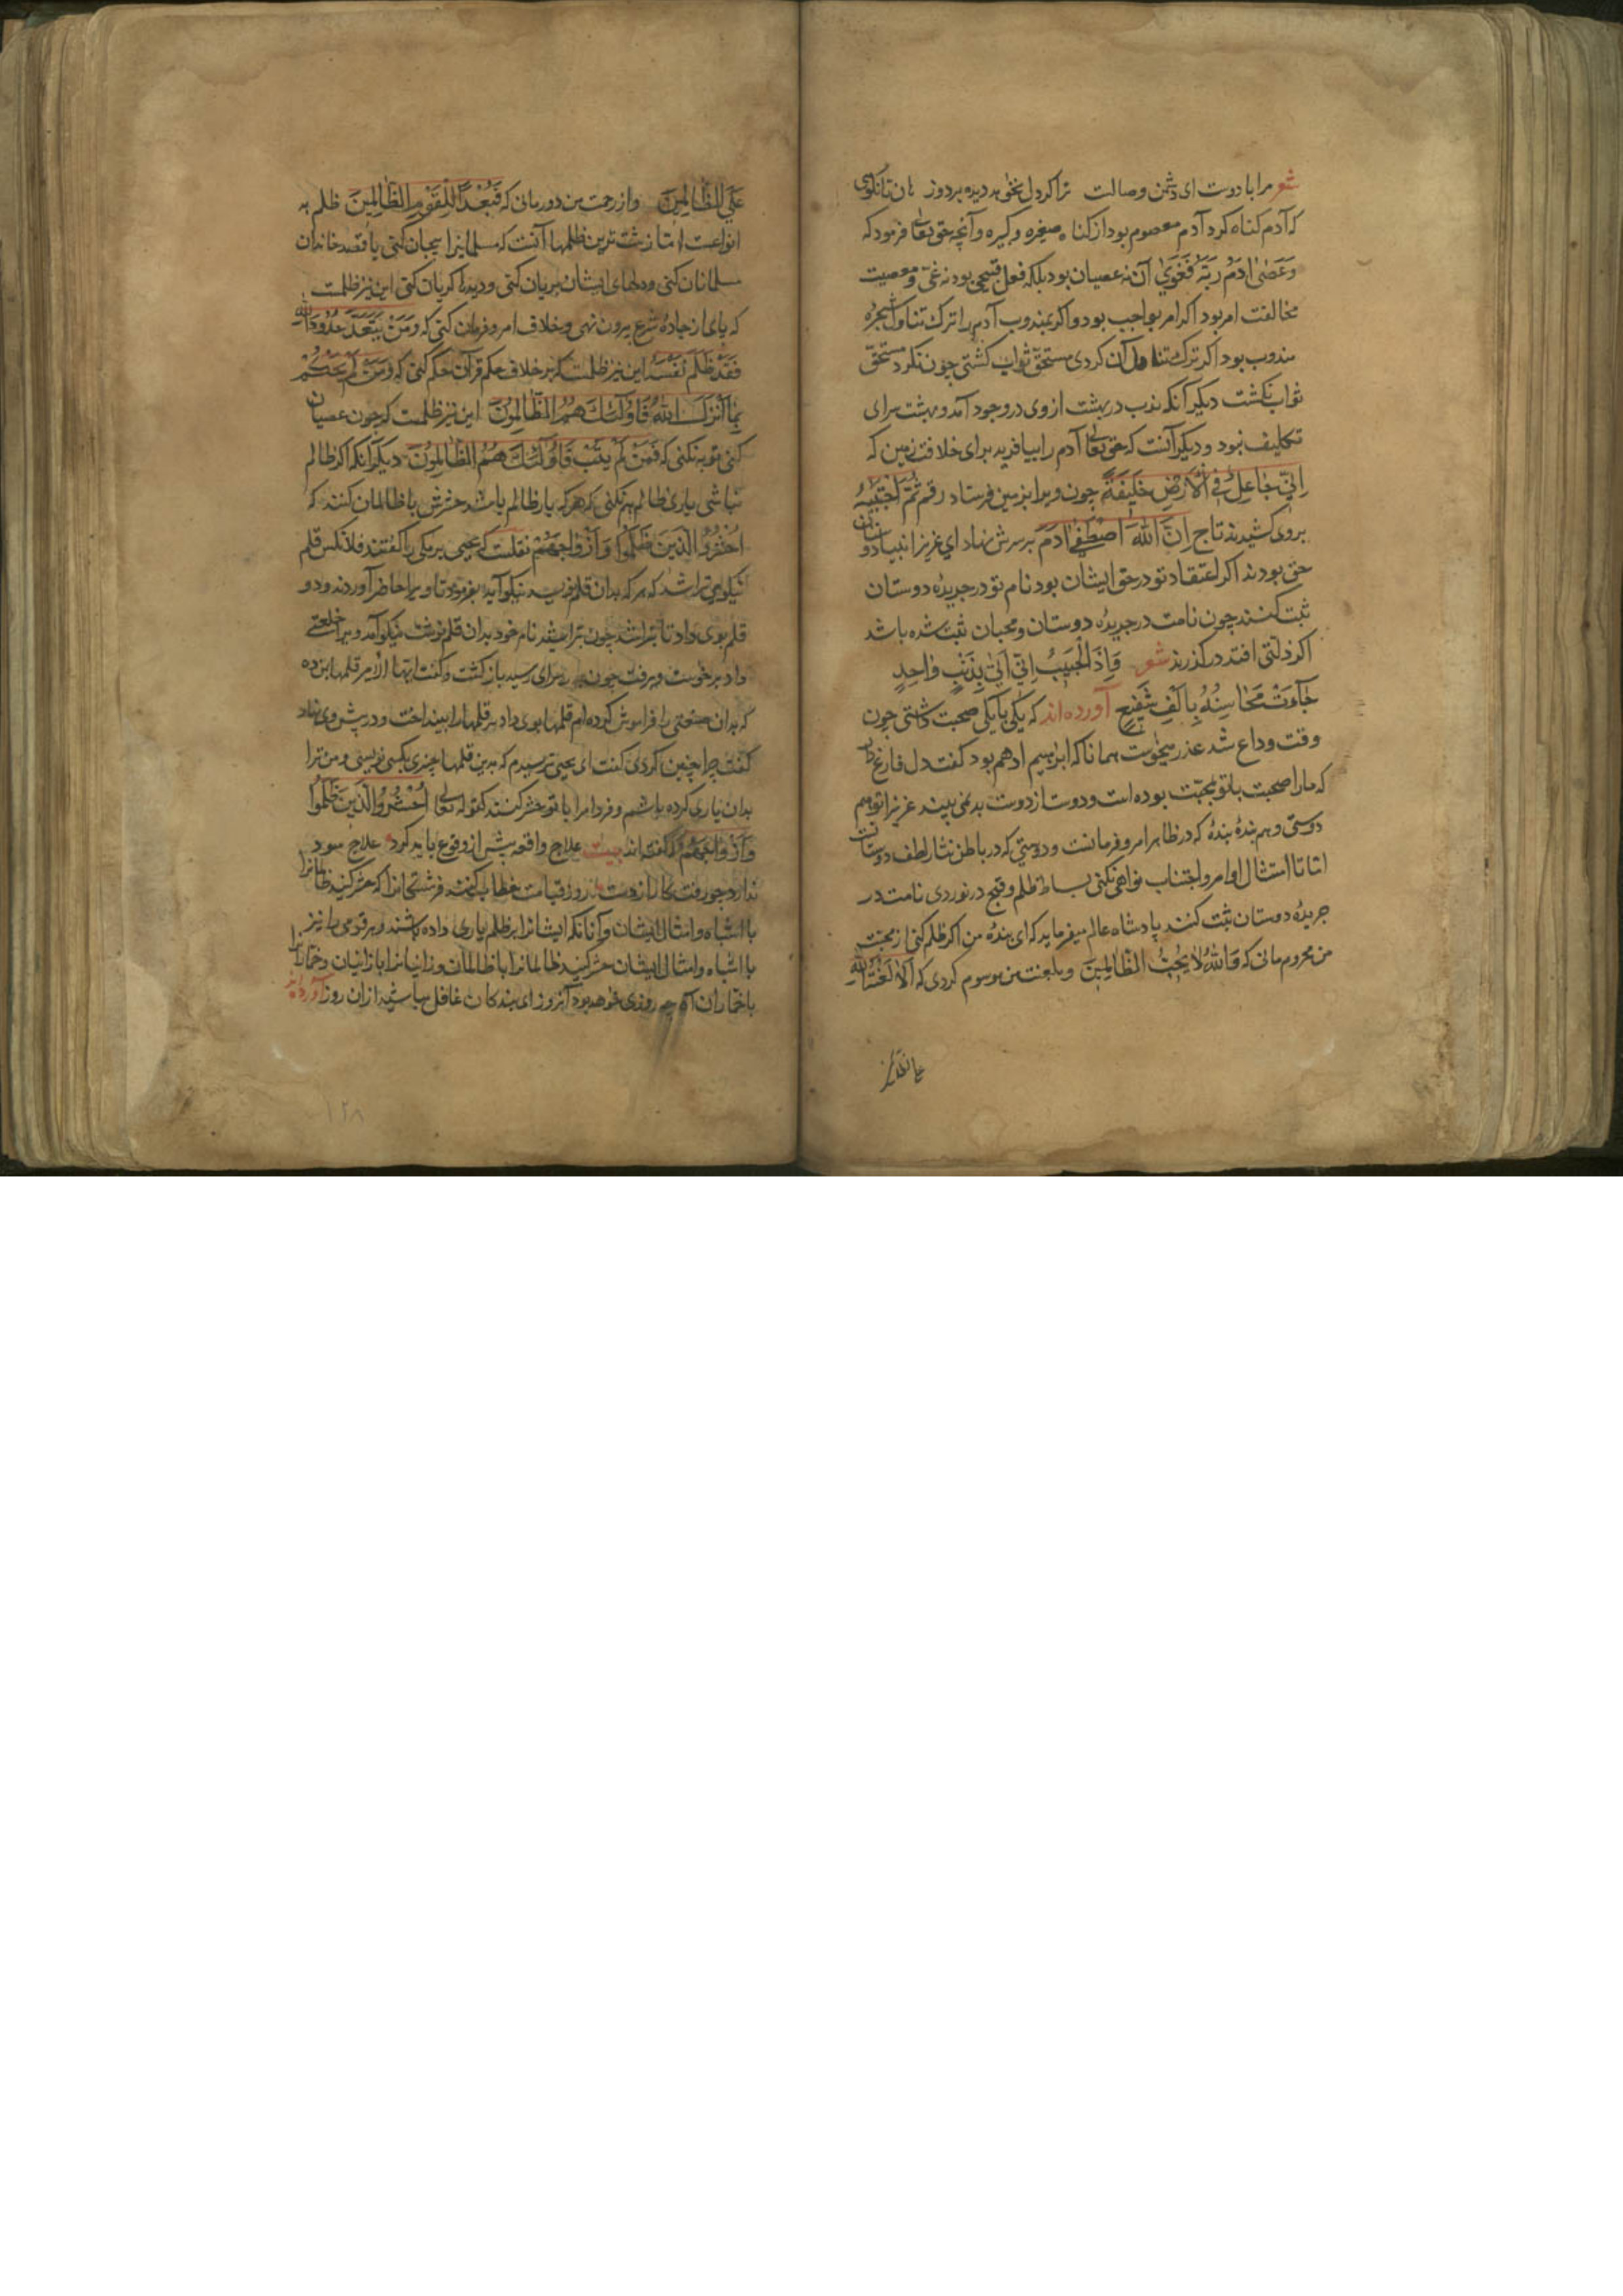 شعر مرا با دوست ای دشمن وصالت ترا کر دل نخواهد دیده بردوز هان تا نکوی
که آدم کناه کرد آدم معصوم بود از کناه صغیره و کبیره و آنچه حق تعالی فرمود که
وَعَصٰی اٰدَمُ رَبَّهُ فَغَوٰی آن نه عصیان بود بلکه فعل قبیحی بود نه غی و معصیت
مخالفت امر بود اکر امر بواجب بود و اکر بمندوب آدم را ترک تناول شجره
مندوب بود اکر ترک تناول آن کردی مستحق ثواب کشتی چون نکرد مستحق
ثواب نکشت دیکر آنکه ندب در بهشت از وی در وجود آمد و بهشت سرای
تکلیف نبود و دیکر آنست که حق تعالی آدم را بیافرید برای خلافت زمین که
اِنّی جَاعِلٌ فِی الْاَرْضِ خَلِیفَةً چون ویرا بزمین فرستاد رقم ثُمَّ اجْتَبٰیهُ
بروی کشیدند تاج اِنَّ اللّٰهَ اصْطَفٰی اٰدَمَ بر سرش نهاد ای عزیز انبیا دوستان
حق بودند اکر اعتقاد تو در حق ایشان بود نام تو در جریدهٔ دوستان
ثبت کنند چون نامت در جریدهٔ دوستان و محبان ثبت شده باشد
اکر ذلتی افتد درکذرند شعر وَاِذَا الْحَبِیبُ اَتٰی بِذَنْبٍ وٰاحِدٍ
جٰآءَتْ مَحَاسِنُهُ بِاَلْفِ شَفِیعٍ آورده‌اند که یکی با یکی صحبت داشتی چون
وقت وداع شد عذر میخواست همانا که ابراهیم ادهم بود کفت دل فارغ دار
که ما را صحبت با تو بمحبت بوده است و دوست از دوست بد نمی بیند عزیزا تو هم
دوستی و هم بندهٔ بندهٔ که در ظاهر امر و فرمانست و دوستی که در باطن نثار لطف دوستانست
اما تا امتثال اوامر و اجتناب نواهی نکنی بساط ظلم و قبح در نوردی نامت در
جریدهٔ دوستان ثبت کنند پادشاه عالم میفرماید که ای بندهٔ من اکر ظلم کنی از محبت
من محروم مانی که وَاللّٰهُ لٰا یُحِبُّ الظّٰالِمِینَ و بلعنت من موسوم کردی که اَلٰا لَعْنَةُ اللّٰهِ
عَلَی الظّٰالِمِینَ و از رحمت من دور مانی که فَبُعْدًا لِلْقَوْمِ الظّٰالِمِینَ ظلم به
انواعست اما زشت ترین ظلمها آنست که مسلمانیرا بیجان کنی یا قصد خاندان
مسلمانان کنی و دلهای ایشان بریان کنی و دیدها کریان کنی این نیز ظلمست
که پای از جادهٔ شرع بیرون نهی و خلاف امر و فرمان کنی که وَمَنْ یَتَعَدَّ حُدُودَ اللّٰهِ
فَقَدْ ظَلَمَ نَفْسَهُ این نیز ظلمست که بر خلاف حکم قرآن حکم کنی که وَمَنْ لَمْ یَحْکُمْ
بِمٰا اَنْزَلَ اللّٰهُ فَاُولٰئِکَ هُمُ الظّٰالِمُونَ این نیز ظلمست که چون عصیان
کنی توبه نکنی که فَمَنْ لَمْ یَتُبْ فَاُولٰئِکَ هُمُ الظّٰالِمُونَ دیکر آنکه اکر ظالم
نباشی یاری ظالم هم نکنی که هر که یار ظالم باشد حشرش با ظالمان کنند که
اُحْشُرُوا الَّذِینَ ظَلَمُوا وَاَزْوٰاجَهُمْ نقلست که یحیی برمکی را کفتند فلانکس قلم
نیکو می تراشد که هر که بدان قلم نویسد نیکو آید بفرمود تا ویرا حاضر آوردند و دو
قلم بوی داد تا بتراشد چون بتراشید نام خود بدان قلم نوشت نیکو آمد ویرا خلعتی
داد برخواست و برفت چون بدر سرای رسید باز کشت و کفت ایها الامیر قلمها بمن ده
که بدان صنعتی را فراموش کرده‌ام قلمها بوی داد سر قلمها را بینداخت و در پیش وی نهاد
کفت چرا چنین کردی کفت ای یحیی ترسیدم که بدین قلمها چیزی بکسی نویسی و من ترا
بدان یاری کرده باشم و فردا مرا با تو حشر کنند کقوله تعالی اُحْشُرُوا الَّذِینَ ظَلَمُوا
وَاَزْوٰاجَهُمْ که کفته‌اند بیت علاج واقعه پیش از وقوع باید کرد علاج سود
ندارد چو رفت کار از دست روز قیامت خطاب کنند فرشتکانرا که حشر کنید ظالمانرا
با اشباه و امثال ایشان و آنانکه ایشانرا بر ظلم یاری داده باشند و هر قومی را نیز
با اشباه و امثال ایشان حشر کنید ظالمانرا با ظالمان و زانیانرا با زانیان و خمارانرا
با خماران آه چه روزی خواهد بود آنروز ای بندکان غافل مباشید از آن روز آورده‌اند
علی الظالمین
۱۲۸